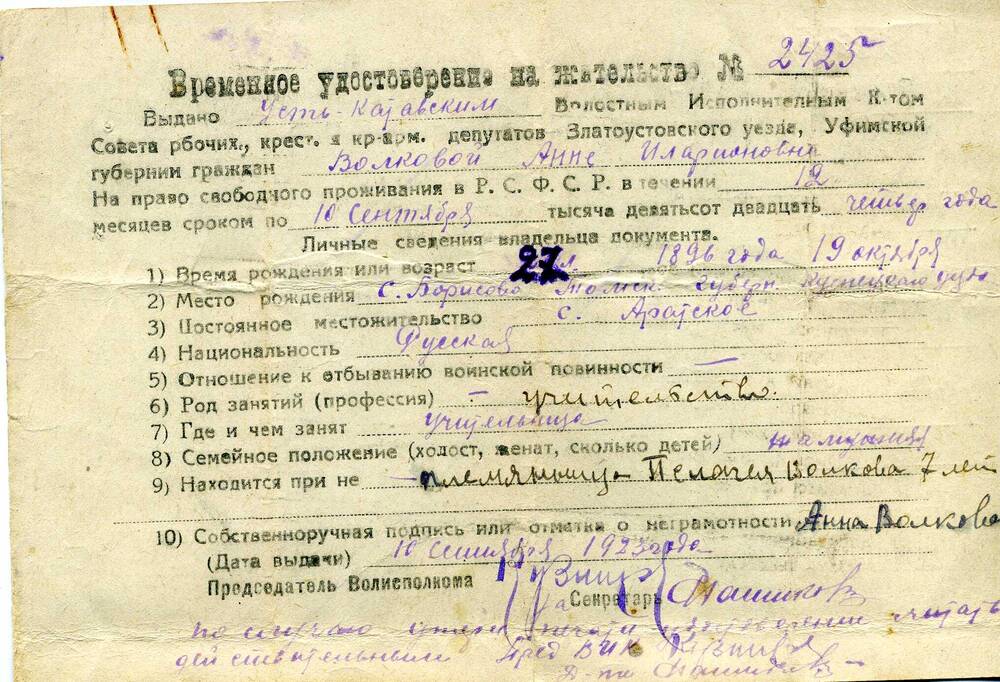 Временное удостоверение на жательство № 2425
Выдано Усть-Катавским Волостным Исполнительным К-том
Совета рбочих., крест. я кр-арм. депутатов Златоустовского уезда, Уфимской
губернии граждан Волковой Анне Иларионовне
На право свободного проживания в Р. С. Ф. С. Р. в течении 12
месяцев сроком по 10 Сентября тысяча девятьсот двадцать четвер года
Личные сведения владельца документа.
1) Время рождения или возраст 27 л. 1896 года 19 октября
2) Место рождения с. Борисово Томск. губерн. Кузнецкого уезда
3) Постоянное местожительство с. Аратское
4) Национальность Русская
5) Отношение к отбыванию воинской повинности —
6) Род занятий (профессия) — учительство.
7) Где и чем занят учительница
8) Семейное положение (холост, женат, сколько детей) замужняя
9) Находится при не — племянница Пелагея Волкова 7 лет
10) Собственноручная подпись или отметка о неграмотности Анна Волкова
(Дата выдачи) 10 Сентября 1923 года
Председатель Волисполкома
За Секретарь
по случаю печати считать
действительным Пред ВИК